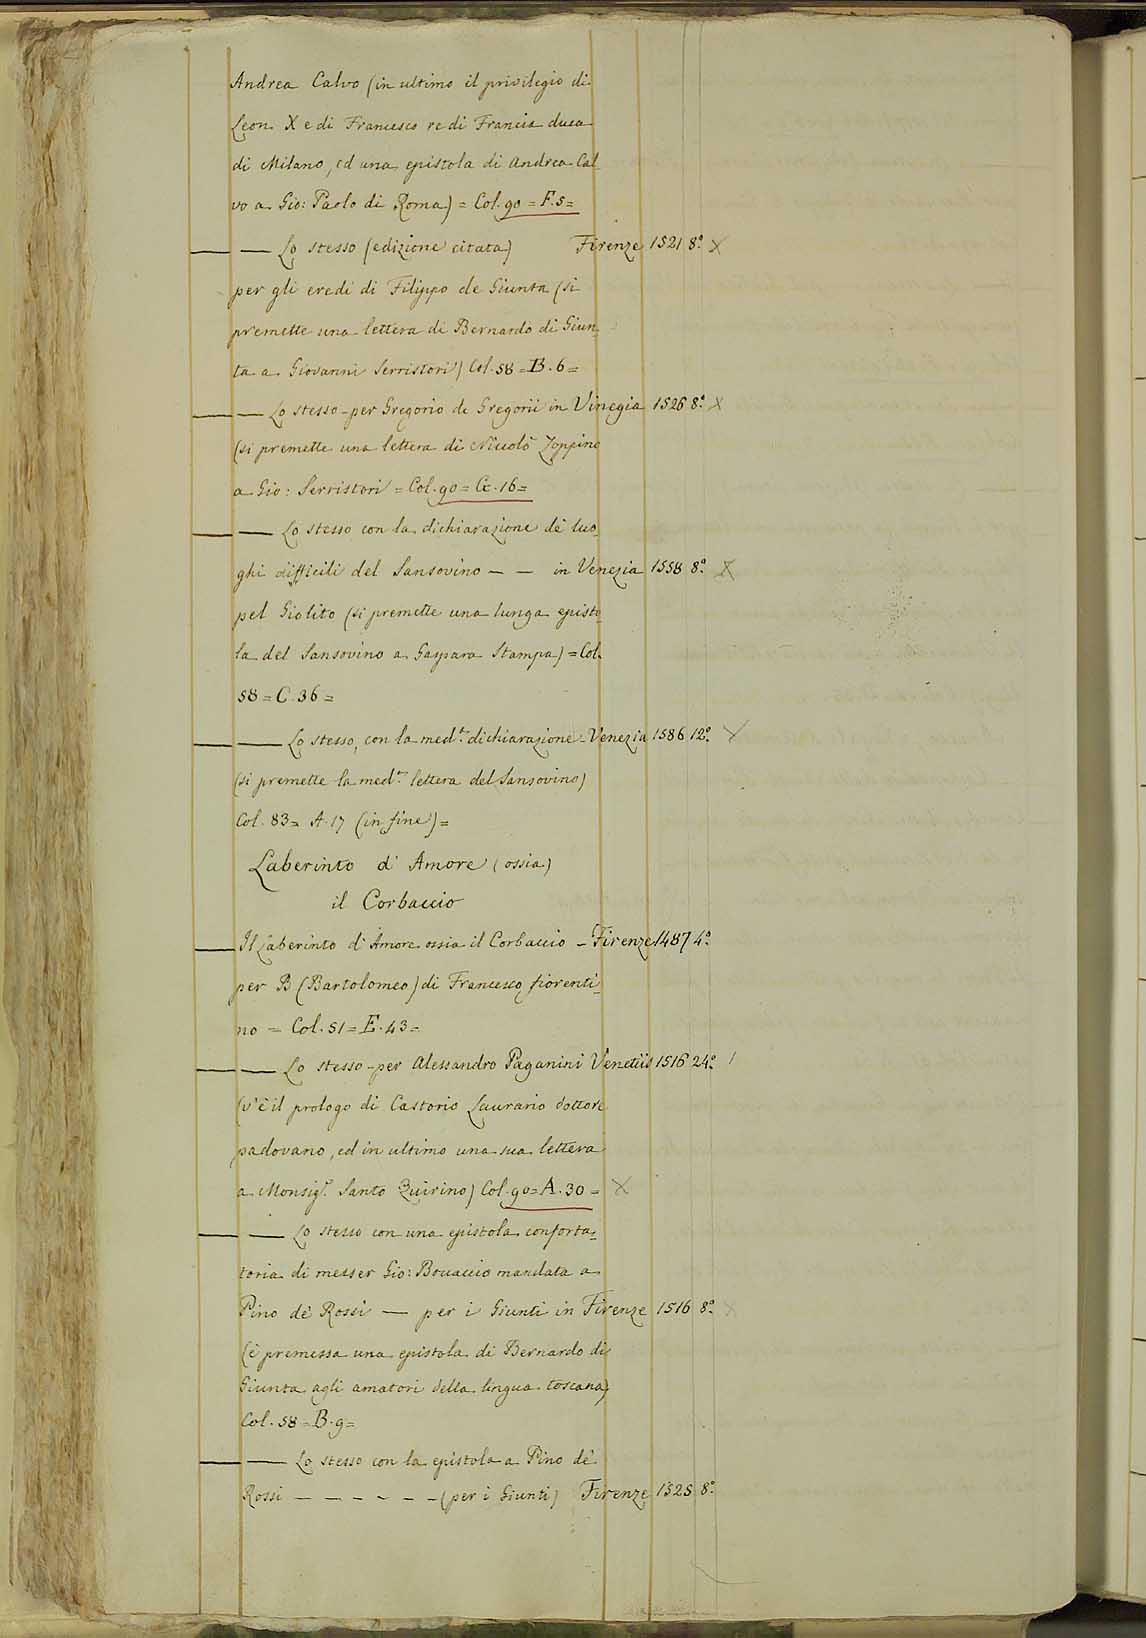 Andrea Calvo (in ultimo il privilegio di
Leon X e di Francesco re di Francia duca
di Milano, ed una epistola di Andrea Cal-
vo a Gio: Paolo di Roma) = Col. 90 = F. 5=
— — Lo stesso (edizione citata) Firenze 1521 8º X
per gli eredi di Filippo de Giunta (si
premette una lettera di Bernardo di Giun-
ta a Giovanni Serristori) Col. 58 = B. 6 =
— — Lo stesso - per Gregorio de Gregorii in Vinegia 1526 8º X
(si premette una lettera di Niccolò Zoppino
a Gio: Serristori = Col. 90 = C. 16 =
— — Lo stesso con la dichiarazione de' luo-
ghi difficili del Sansovino — — in Venezia 1558 8º X
pel Giolito (si premette una lunga episto-
la del Sansovino a Gaspara Stampa) = Col.
58 = C. 36 =
— — Lo stesso, con la med.ª dichiarazione - Venezia 1586 12º X
(si premette la med.ª lettera del Sansovino)
Col. 83 = A. 17 (in fine) =
Laberinto d'Amore (ossia)
il Corbaccio
— Il Laberinto d'Amore ossia il Corbaccio - Firenze 1487 4º
per B (Bartolomeo) di Francesco fiorenti-
no = Col. 51 = E. 43 =
— — Lo stesso - per Alessandro Paganini Venetiis 1516 24º /
(v'è il prologo di Castorio Laurario dottore
padovano, ed in ultimo una sua lettera
a Monsig.r Santo Quirino) Col. 90 = A. 30 = X
— — Lo stesso con una epistola conforta-
toria di messer Gio: Boccaccio mandata a
Pino de' Rossi — per i Giunti in Firenze 1516 8º X
(è premessa una epistola di Bernardo di
Giunta agli amatori della lingua toscana)
Col. 58 = B. 9 =
— — Lo stesso con la epistola a Pino de'
Rossi — — — — — — (per i Giunti) Firenze 1525 8º